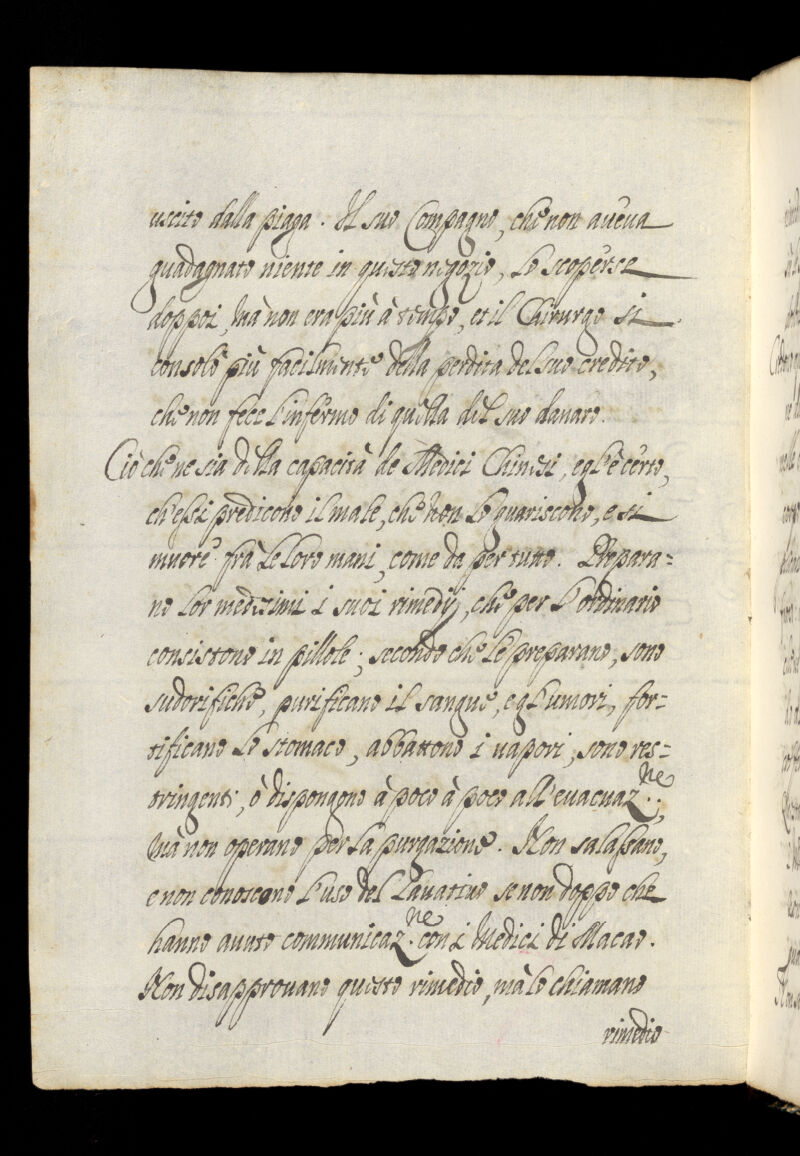 uscito dalla piaga. Il suo Compagno, che non aueua
guadagnato niente in questo negozio, lo scoperse
doppoi, mà non era più à tempo, et il Chirurgo si
consolò più facilmente della perdita del suo credito,
che non fece l'infermo di quella del suo danaro.
Ciò che ne sia della capacità de Medici Chinesi, egl'è certo,
ch'essi predicono il male, che non lo guariscono, e si
muore frà le loro mani, come da per tutto. Prepara=
no lor medesimi i suoi rimedij, che per l'ordinario
consistono in pillole; secondo che le preparano, sono
sudorifiche, purificano il sangue, e gl'umori, for=
tificano lo stomaco, abbattono i uapori, sono res=
tringenti, ò dispongono à poco à poco all'euacuaz.ne;
mà non operano per la purgazione. Non salassano,
e non conoscono l'uso del Lauatiuo se non doppo che
hanno auuto communicaz.ne con i Medici di Macao.
Non disapprouano questo rimedio, mà lo chiamano
rimedio